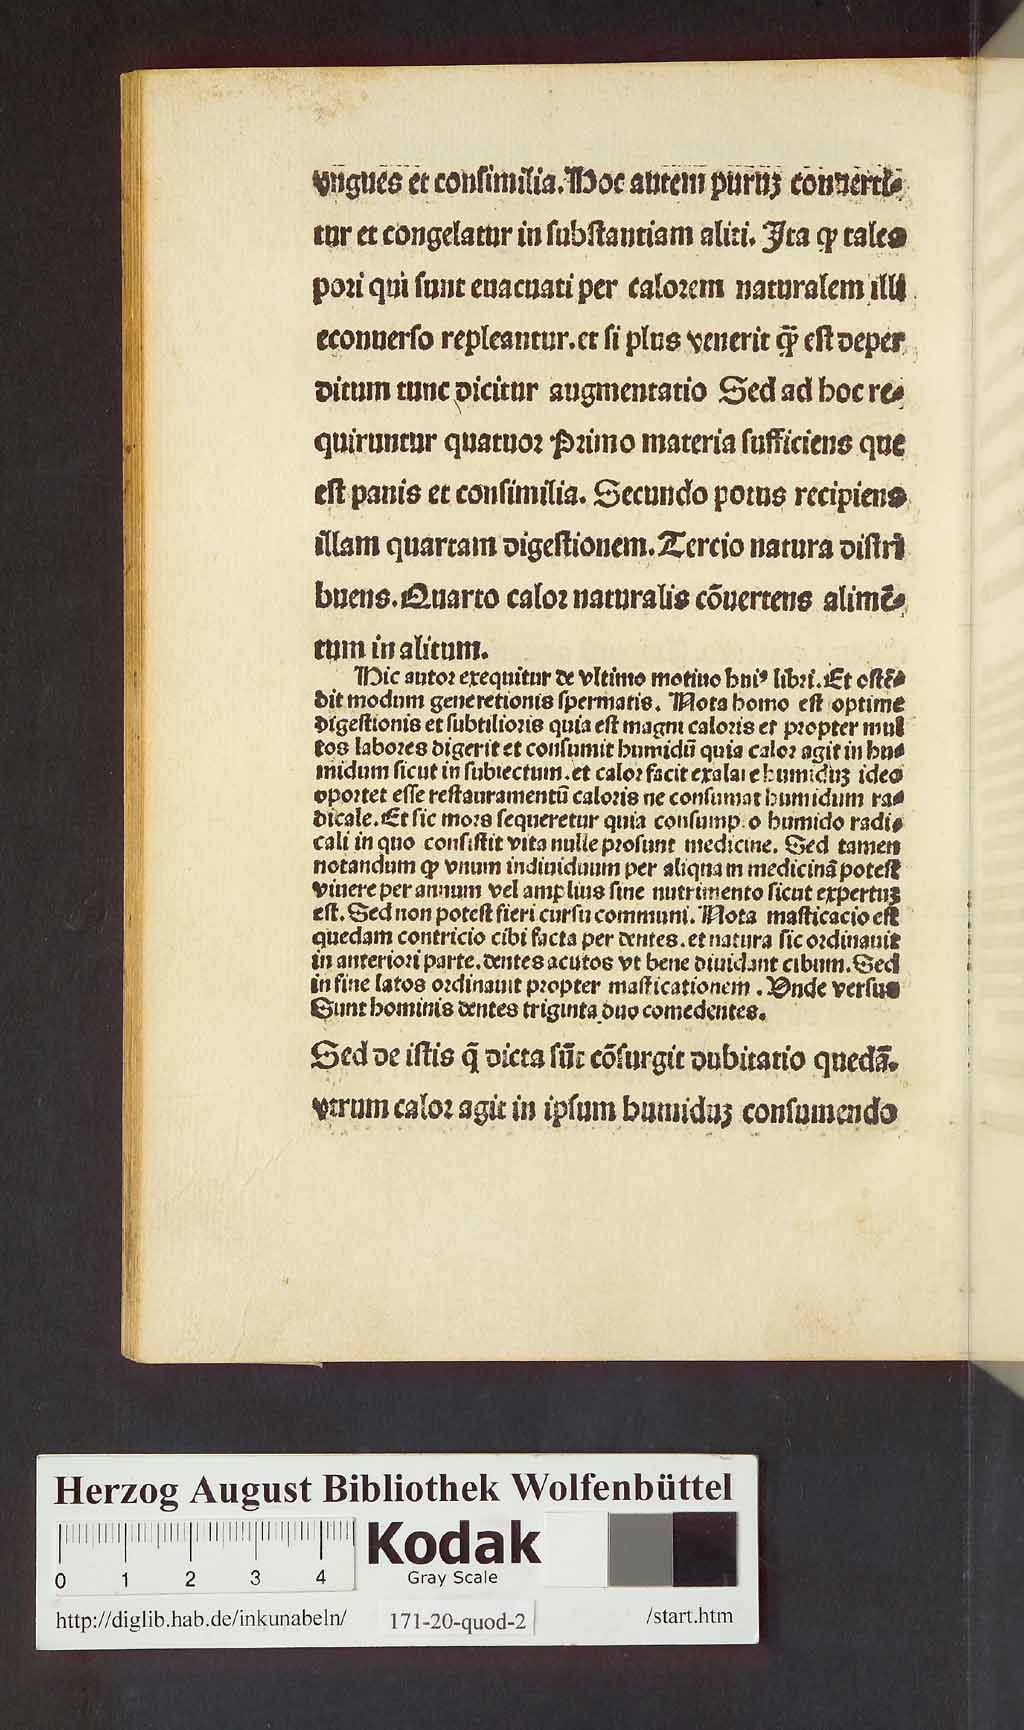 vngues et conſimilia. Hoc autem puruꝫ conuerti⸗
tur et congelatur in ſubſtantiam aliti. Ita ꝙ tales
pori qui ſunt euacuati per calorem naturalem illi
econuerſo repleantur. et ſi plus venerit ꝙ̄ eſt deper
ditum tunc dicitur augmentatio Sed ad hoc re⸗
quiruntur quatuor Primo materia ſufficiens que
eſt panis et conſimilia. Secundo potus recipiens
illam quartam digeſtionem. Tercio natura diſtri
buens. Quarto calor naturalis cōuertens alimē⸗
tum in alitum.
Hic autor exequitur de vltimo motiuo huiꝰ libri. Et oſtē⸗
dit modum generetionis ſpermatis. Nota homo eſt optime
digeſtionis et ſubtilioris quia eſt magni caloris et propter mul
tos labores digerit et conſumit humidū quia calor agit in hu⸗
midum ſicut in ſubiectum. et calor facit exalare humiduꝫ ideo
oportet eſſe reſtauramentū caloris ne conſumat humidum ra⸗
dicale. Et ſic mors ſequeretur quia conſumpto humido radi⸗
cali in quo conſiſtit vita nulle proſunt medicine. Sed tamen
notandum ꝙ vnum indiuiduum per aliquam medicinā poteſt
viuere per annum vel amplius ſine nutrimento ſicut expertuꝫ
eſt. Sed non poteſt fieri curſu communi. Nota maſticacio eſt
quedam contricio cibi facta per dentes. et natura ſic ordinauit
in anteriori parte. dentes acutos vt bene diuidant cibum. Sed
in fine latos ordinauit propter maſticationem. Vnde verſus
Sunt hominis dentes triginta duo comedentes.
Sed de iſtis q̄ dicta ſūt cōſurgit dubitatio quedā.
vtrum calor agit in ipſum humiduꝫ conſumendo
Herzog August Bibliothek Wolfenbüttel
0 1 2 3 4
Kodak
Gray Scale
http://diglib.hab.de/inkunabeln/ 171-20-quod-2 /start.htm